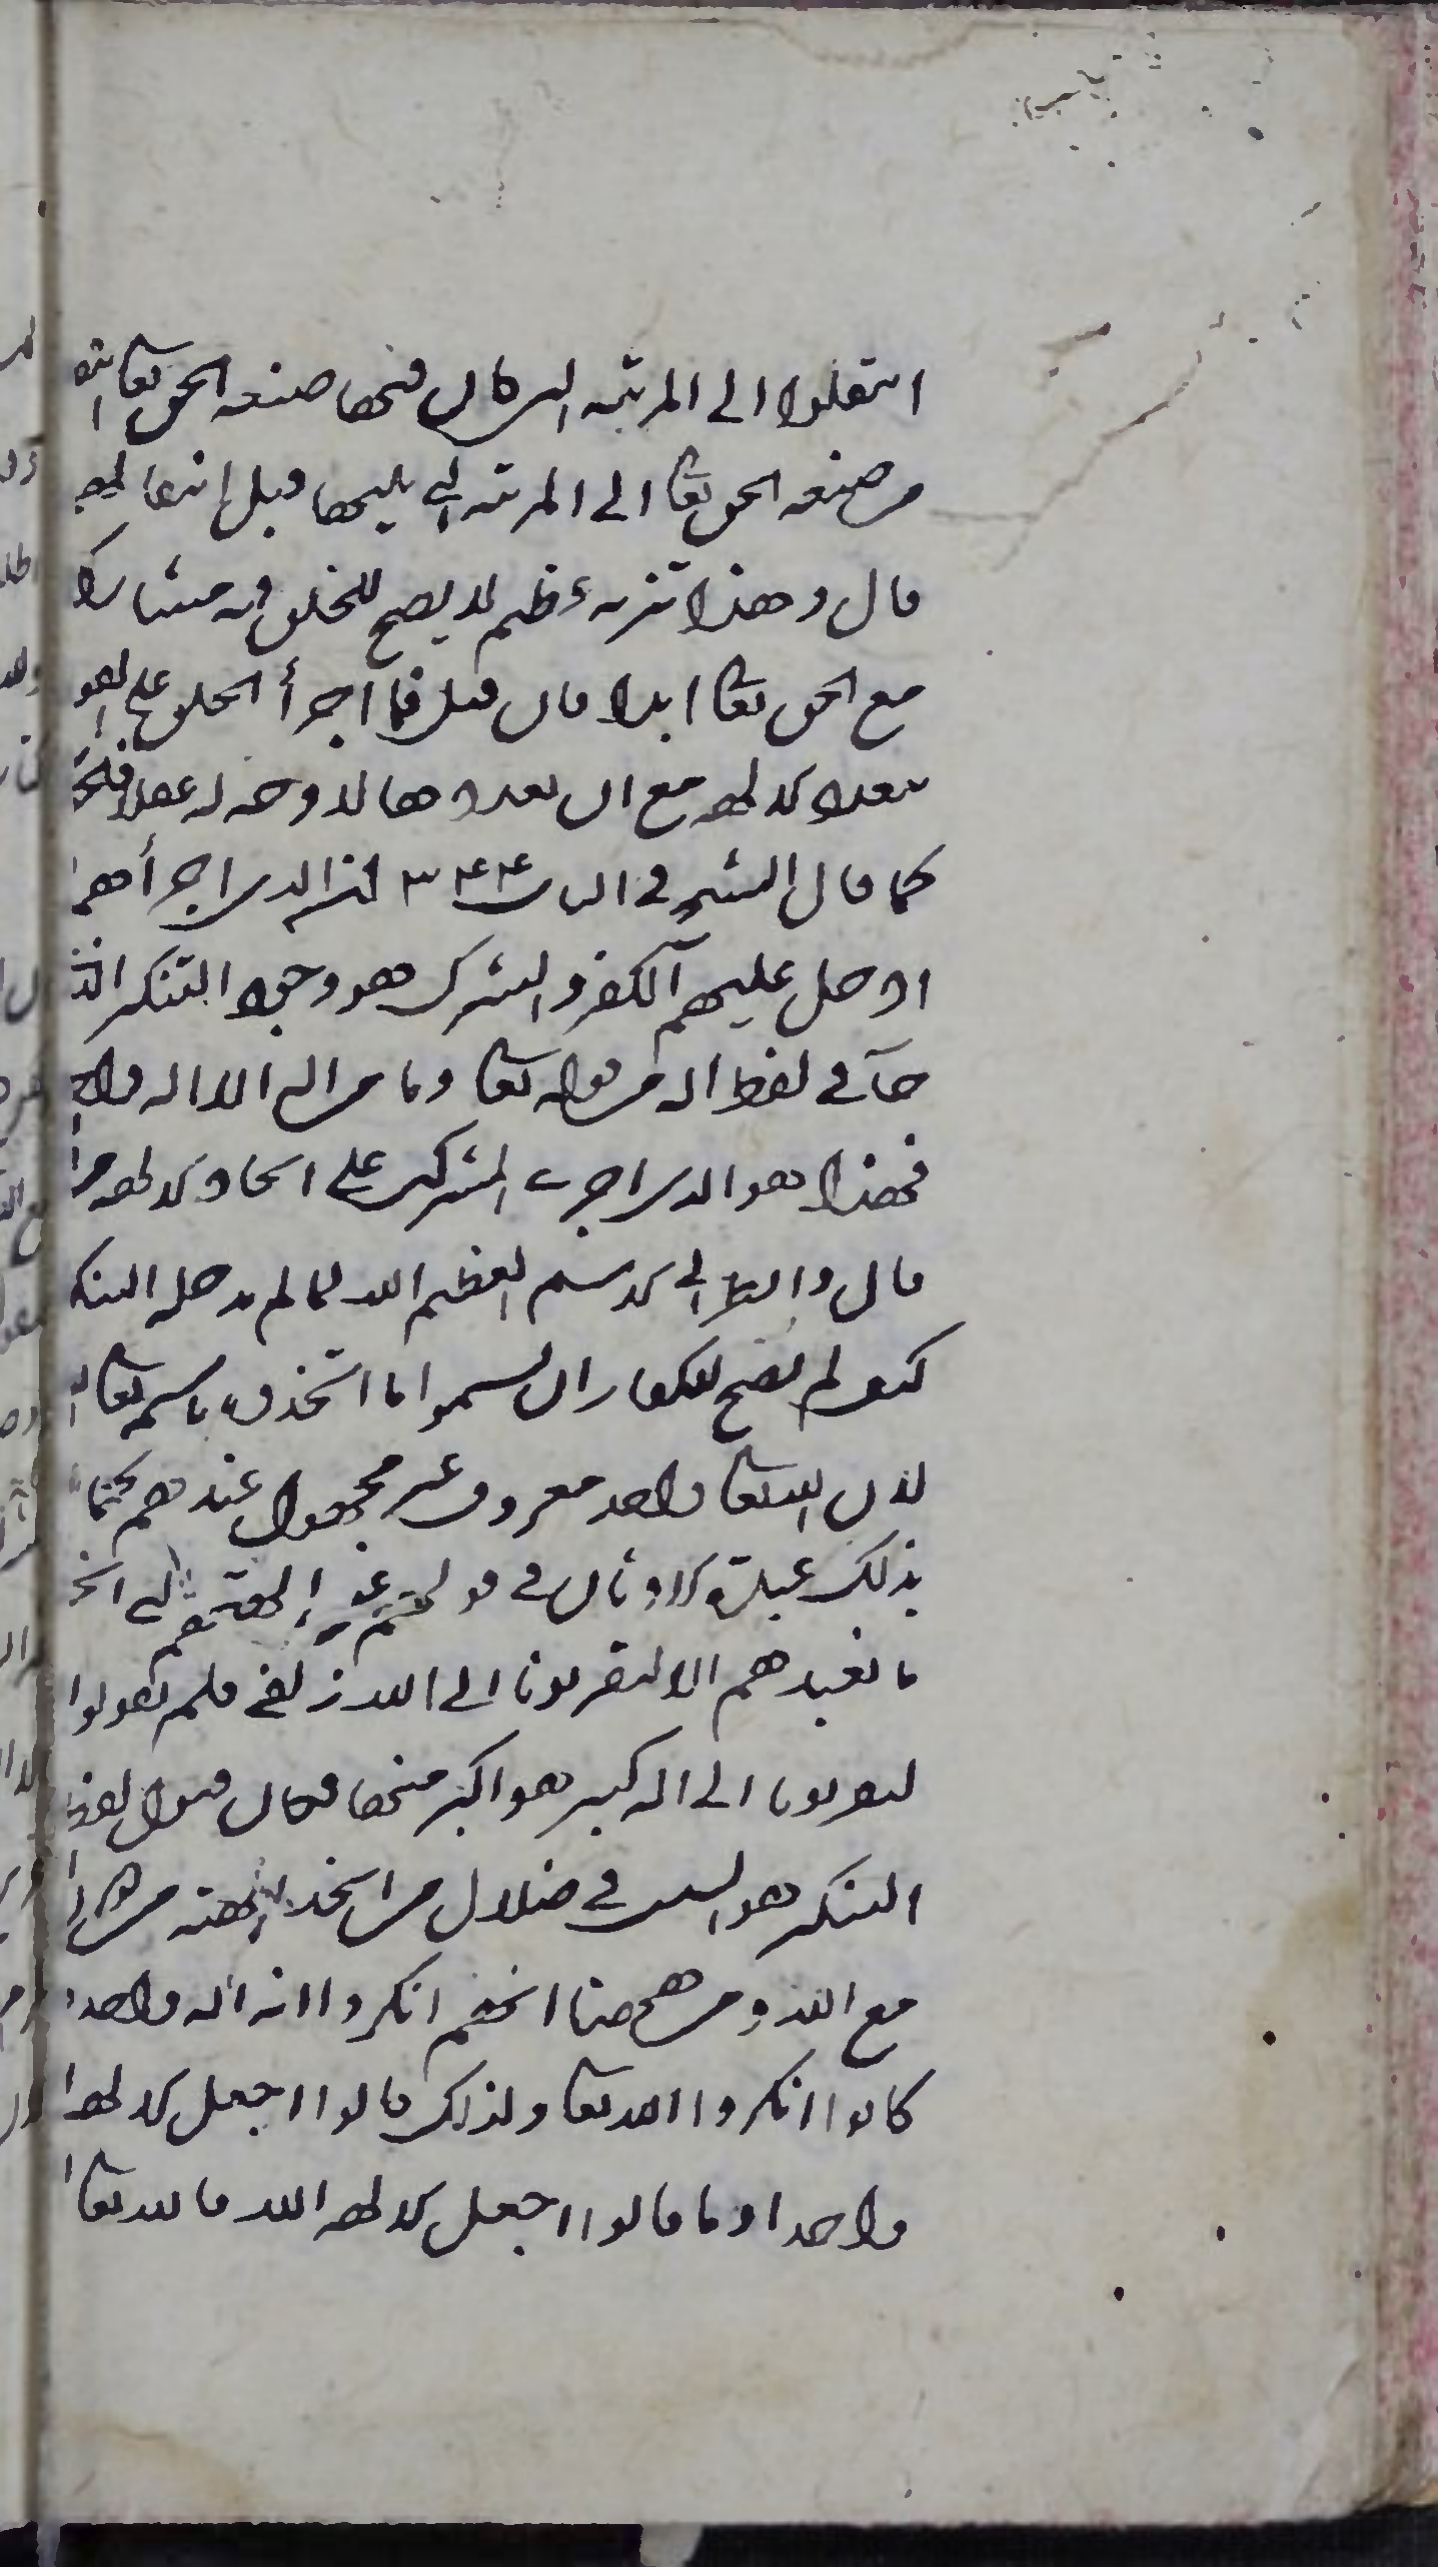 انتقلوا الى المرتبة التى كان فيها صفة الحق تعا انتقل
من صفة الحق تعا الى المرتبة التى يليها قبل انتقالهم
قال وهذا تنزيه عظيم لا يصح للخلق فيه مشاركة
مع الحق تعا ابدا فان قيل فما اجرأ الخلق على القول
بتعداد الالهة مع ان تعددها لا وجه له عقلا قلت
كما قال الشيخ في الباب ٣٤٤ ان الذى اجرأهم
ادخل عليهم الكفر والشرك هو وجود التنكير الذى
جآ في لفظ اله من قوله تعا وما من اله الا اله واحد
فهذا هو الذى اجرى المشركين على اتخاذ الالهة من
قال وانظر الى الاسم العظيم الله لما لم يدخله التنكير
كيف لم يصح للكفار ان يسموا ما اتخذوه باسمه تعا
لان الله تعا واحد معروف غير مجهول عندهم كما
بذلك عبدة الاوثان في قولهم عن الهتهم التى اتخذ
ما نعبدهم الا ليقربونا الى الله زلفى فلم يقولوا
ليقربونا الى اله كبير هو اكبر منها فكان قبول لفظ
التنكير هو السبب في ضلال من اتخذ الهته من دون
مع الله ومن هاهنا انهم انكروا انه اله واحد
كانوا انكروا الله تعا ولذلك قالوا اجعل الالهة
واحدا وما قالوا اجعل الالهة الله فالله تعا